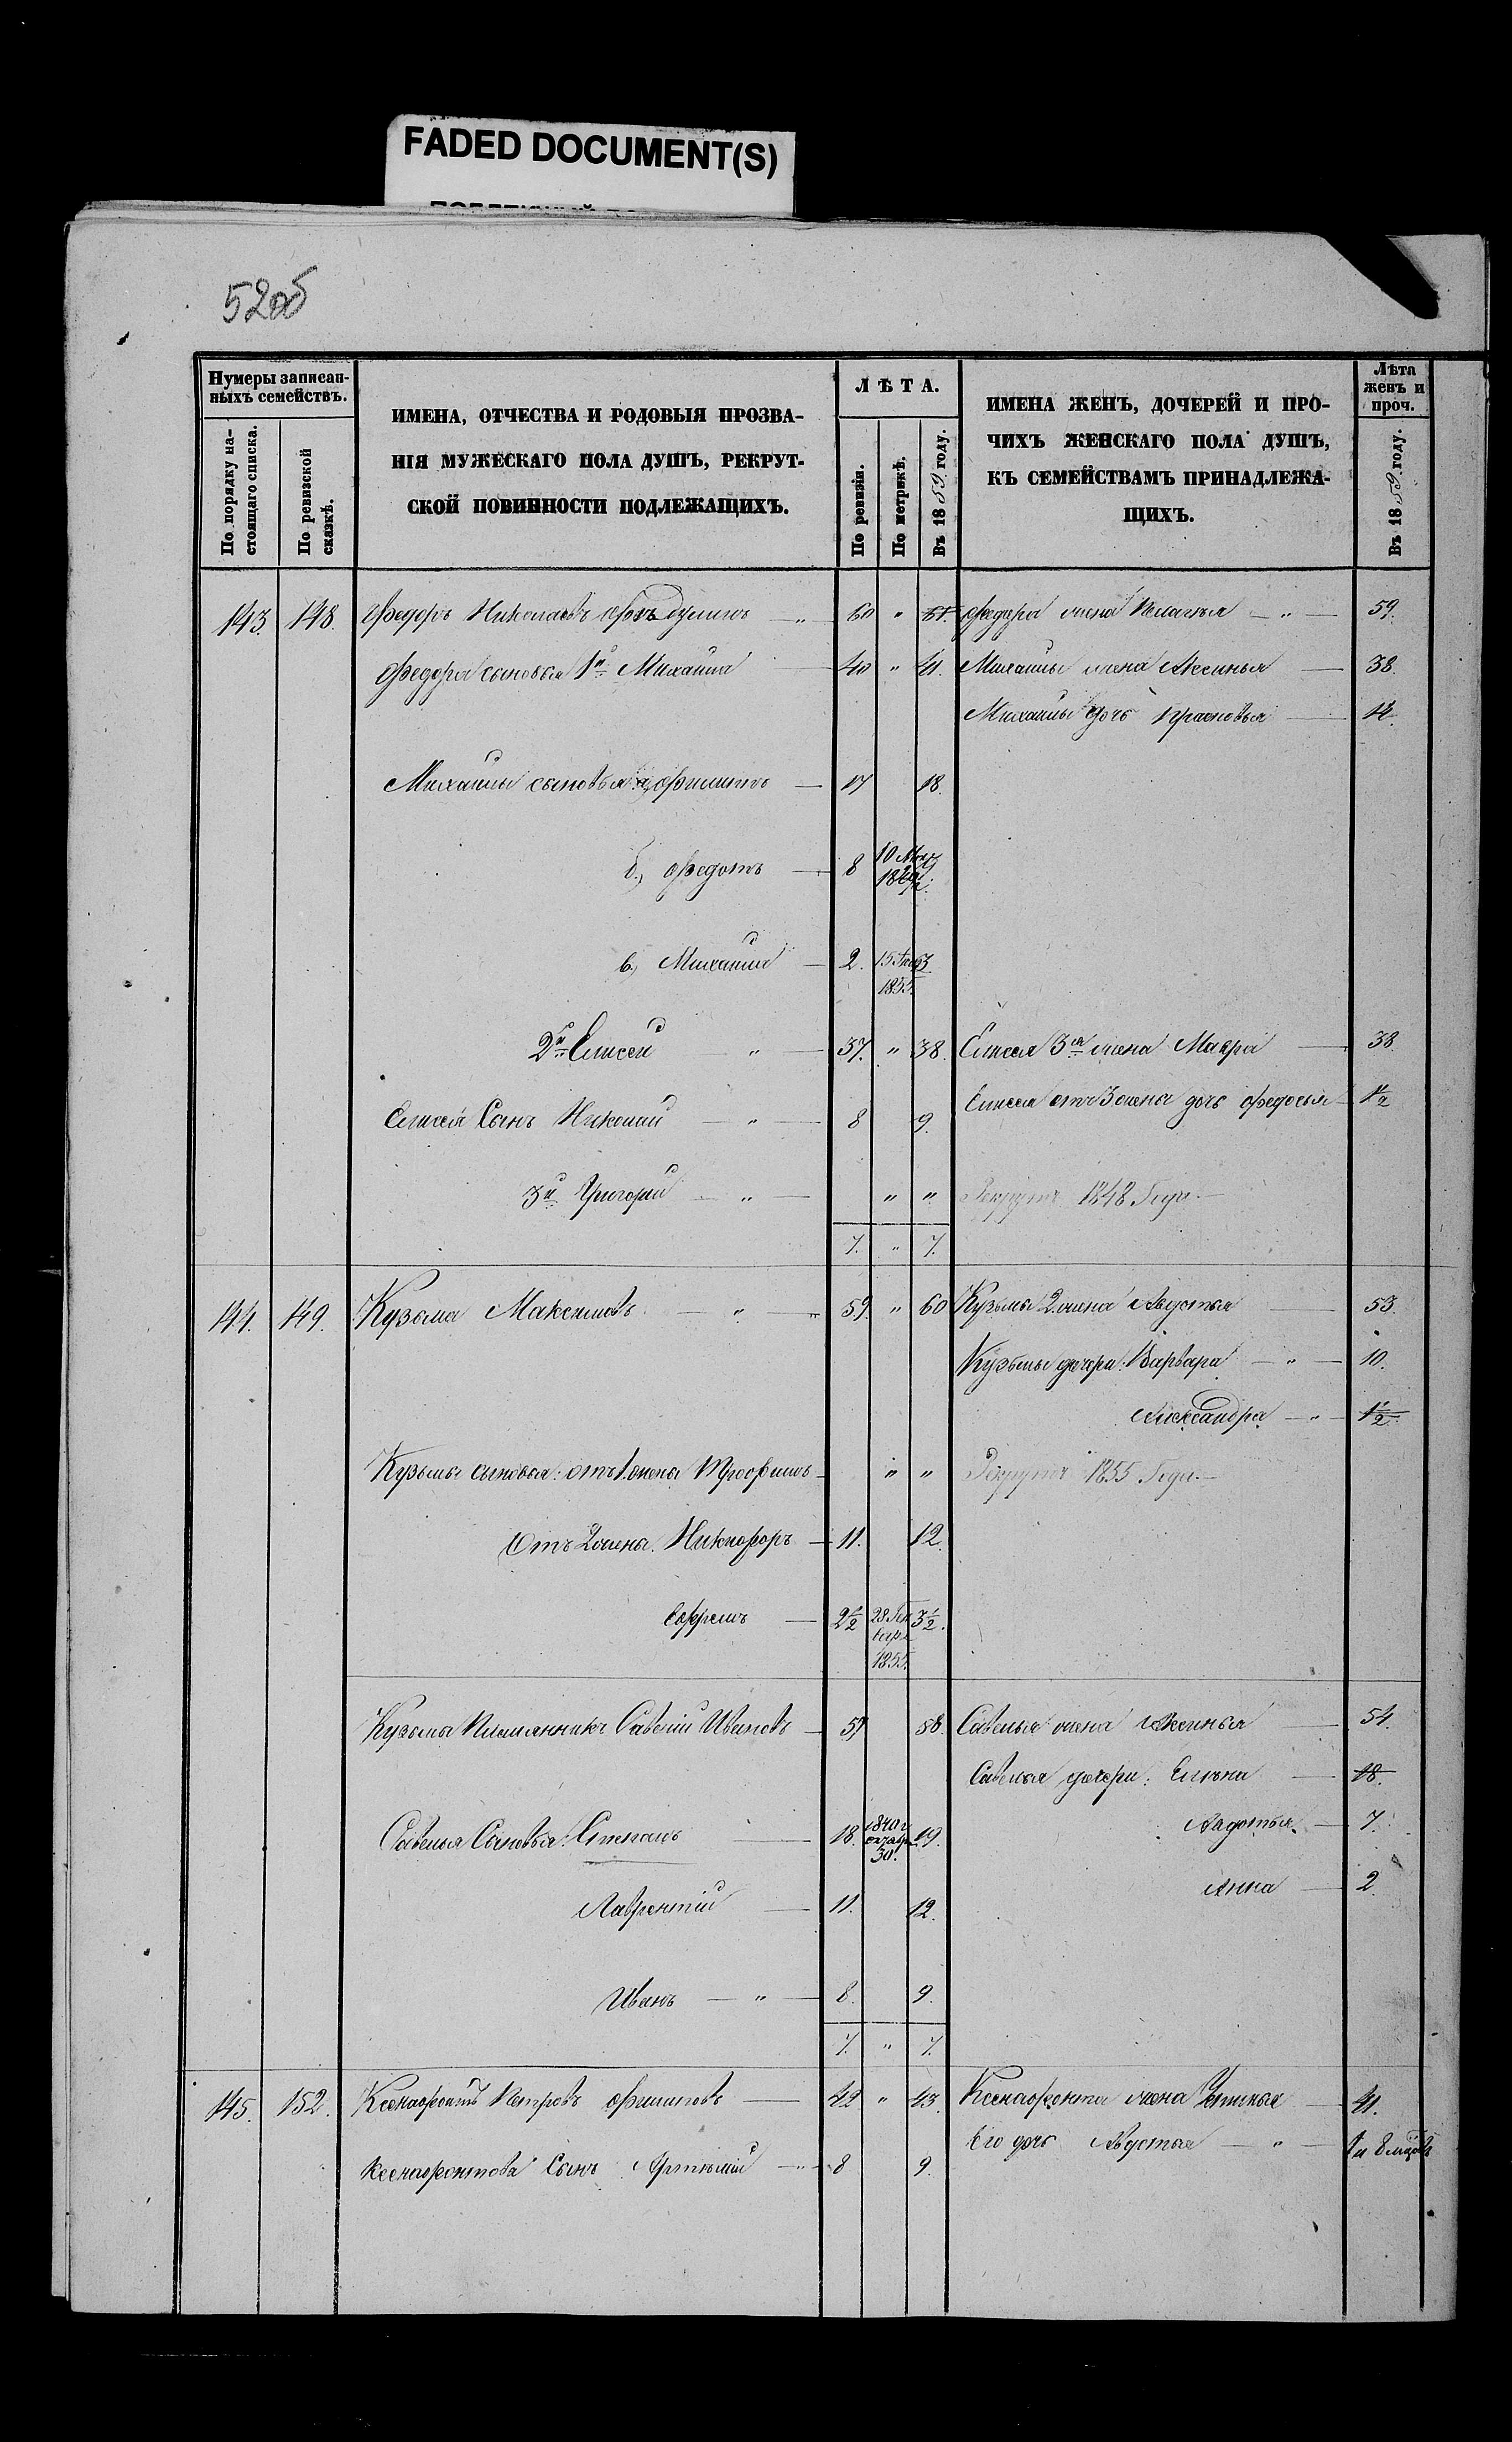 FADED DOCUMENT(S)
52об
Нумеры записан-
ныхъ семействъ.
По порядку на-
стоящаго списка.
По ревизской
сказкѣ.
ИМЕНА, ОТЧЕСТВА И РОДОВЫЯ ПРОЗВА-
НІЯ МУЖЕСКАГО ПОЛА ДУШЪ, РЕКРУТ-
СКОЙ ПОВИННОСТИ ПОДЛЕЖАЩИХЪ.
ЛѢТА.
По ревизіи.
По метрикѣ.
Въ 1859 году.
ИМЕНА ЖЕНЪ, ДОЧЕРЕЙ И ПРО-
ЧИХЪ ЖЕНСКАГО ПОЛА ДУШЪ,
КЪ СЕМЕЙСТВАМЪ ПРИНАДЛЕЖА-
ЩИХЪ.
Лѣта
женъ и
проч.
Въ 1859 году.
143. 148. Федоръ Николаевъ — „ 60 „ 61. Федора жена Пелагья — „ — 59.
Федора сыновья 1й Михаила — 40 „ 41. Михаилы жена Аксинья — 38.
Михаилы дочь Прасковья — 12.
Михаилы сыновья: а, Филиппъ — 17 18.
б, Федотъ — 8 10
в, Михаилъ — 2. 15 3.
1855.
2й Елисей — „ — 37. „ 38. Елисея 3я жена Мавра — 38.
Елисея Сынъ Николай — „ — 8 9. Елисея отъ 3 жены дочь Федосья — 1/2
3й Григорій — „ — „ „ Рекрутъ 1848 Года. —
7. „ 7.
144. 149. Кузьма Максимовъ — „ — „ 59. „ 60 Кузьмы 2 жена Авдотья — 53.
Кузьмы дочери: Варвара — „ — 10.
Александра — „ — 1 1/2
Кузьмы сыновья: отъ 1. жены Трофимъ — „ „ Рекрутъ 1855 Года. —
Отъ 2 жены. Никифоръ — 11. 12.
Ефремъ — 2 1/2 28 Ген 3 1/2.
варя
1855.
Кузьмы Племянникъ Савелій Ивановъ — 57 58. Савелья жена Аксинья — 54.
Савелья дочери: Елена — 18.
Савелья Сыновья: Степанъ — 18. 1840 г 19. Авдотья — 7.
октября
30.
Лаврентій — 11. 12. Анна — 2.
Иванъ — „ — 8. 9.
7. „ 7.
145. 152. Ксенофонтъ Петровъ Филиповъ — 42 „ 43. Ксенофонта жена Устинья — 41.
Его дочь Авдотья — „ — 1 и 8 мцовъ
Ксенофонтова Сынъ Артемій — „ — 8 9.